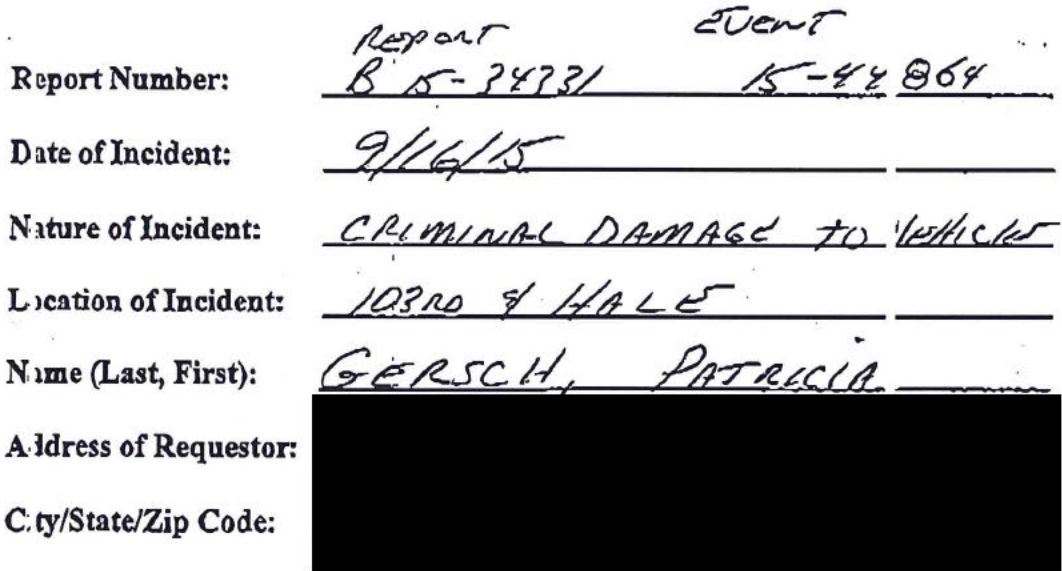 REPORT EVENT
Report Number: B 15-34331 15-44864
Date of Incident: 9/16/15
Nature of Incident: CRIMINAL DAMAGE TO VEHICLE
Location of Incident: 103RD & HALE
Name (Last, First): GERSCH, PATRICIA
Address of Requestor:
City/State/Zip Code: